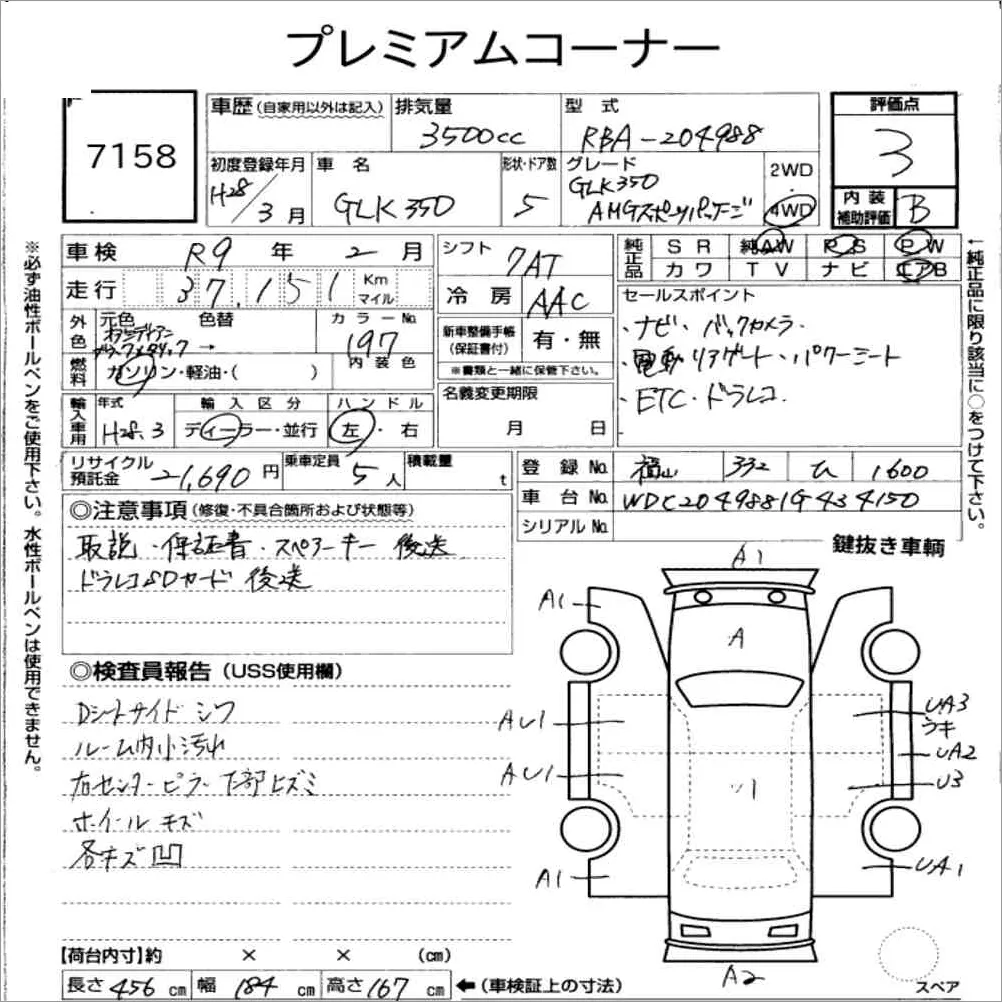 プレミアムコーナー
7158
車歴(自家用以外は記入)
排気量 3500cc
型式 RBA-204988
評価点 3
初度登録年月 H28/3月
車名 GLK350
形状・ドア数 5
グレード GLK350
AMGスポーツパッケージ
2WD
4WD
内装補助評価 B
※必ず油性ボールペンをご使用下さい。水性ボールペンは使用できません。
車検 R9年2月
走行 37,151 Km マイル
外色 元色 色替
→
カラーNo. 197
燃料 ガソリン・軽油・( )
内装色
輸入車用 年式 H28.3
輸入区分 ディーラー・並行
ハンドル 左・右
シフト 7AT
冷房 AAC
新車整備手帳(保証書付) 有・無
※書類と一緒に保管下さい。
名義変更期限
月 日
純正品 SR 純AW PS PW
カワ TV ナビ エアB
セールスポイント
・ナビ・バックカメラ・
・電動リアゲート・パワーシート
・ETC・ドラレコ
←純正品に限り該当に○をつけて下さい。
リサイクル預託金 21,690円
乗車定員 5人
積載量 t
登録No. 福山 332 ひ 1600
車台No. WDC2049881G434150
シリアルNo.
◎注意事項(修復・不具合箇所および状態等)
取説・保証書・スペアーキー 後送
ドラレコSDカード 後送
鍵抜き車輌
◎検査員報告(USS使用欄)
Dシートサイド シワ
ルーム内小汚れ
右センターピラー下部ヒズミ
ホイールキズ
各キズ凹
A1
A1
A
AU1
UA3
ウキ
UA2
AU1
U3
A1
UA1
A2
スペア
【荷台内寸】約 × × (cm)
長さ 456 cm 幅 184 cm 高さ 167 cm ←(車検証上の寸法)